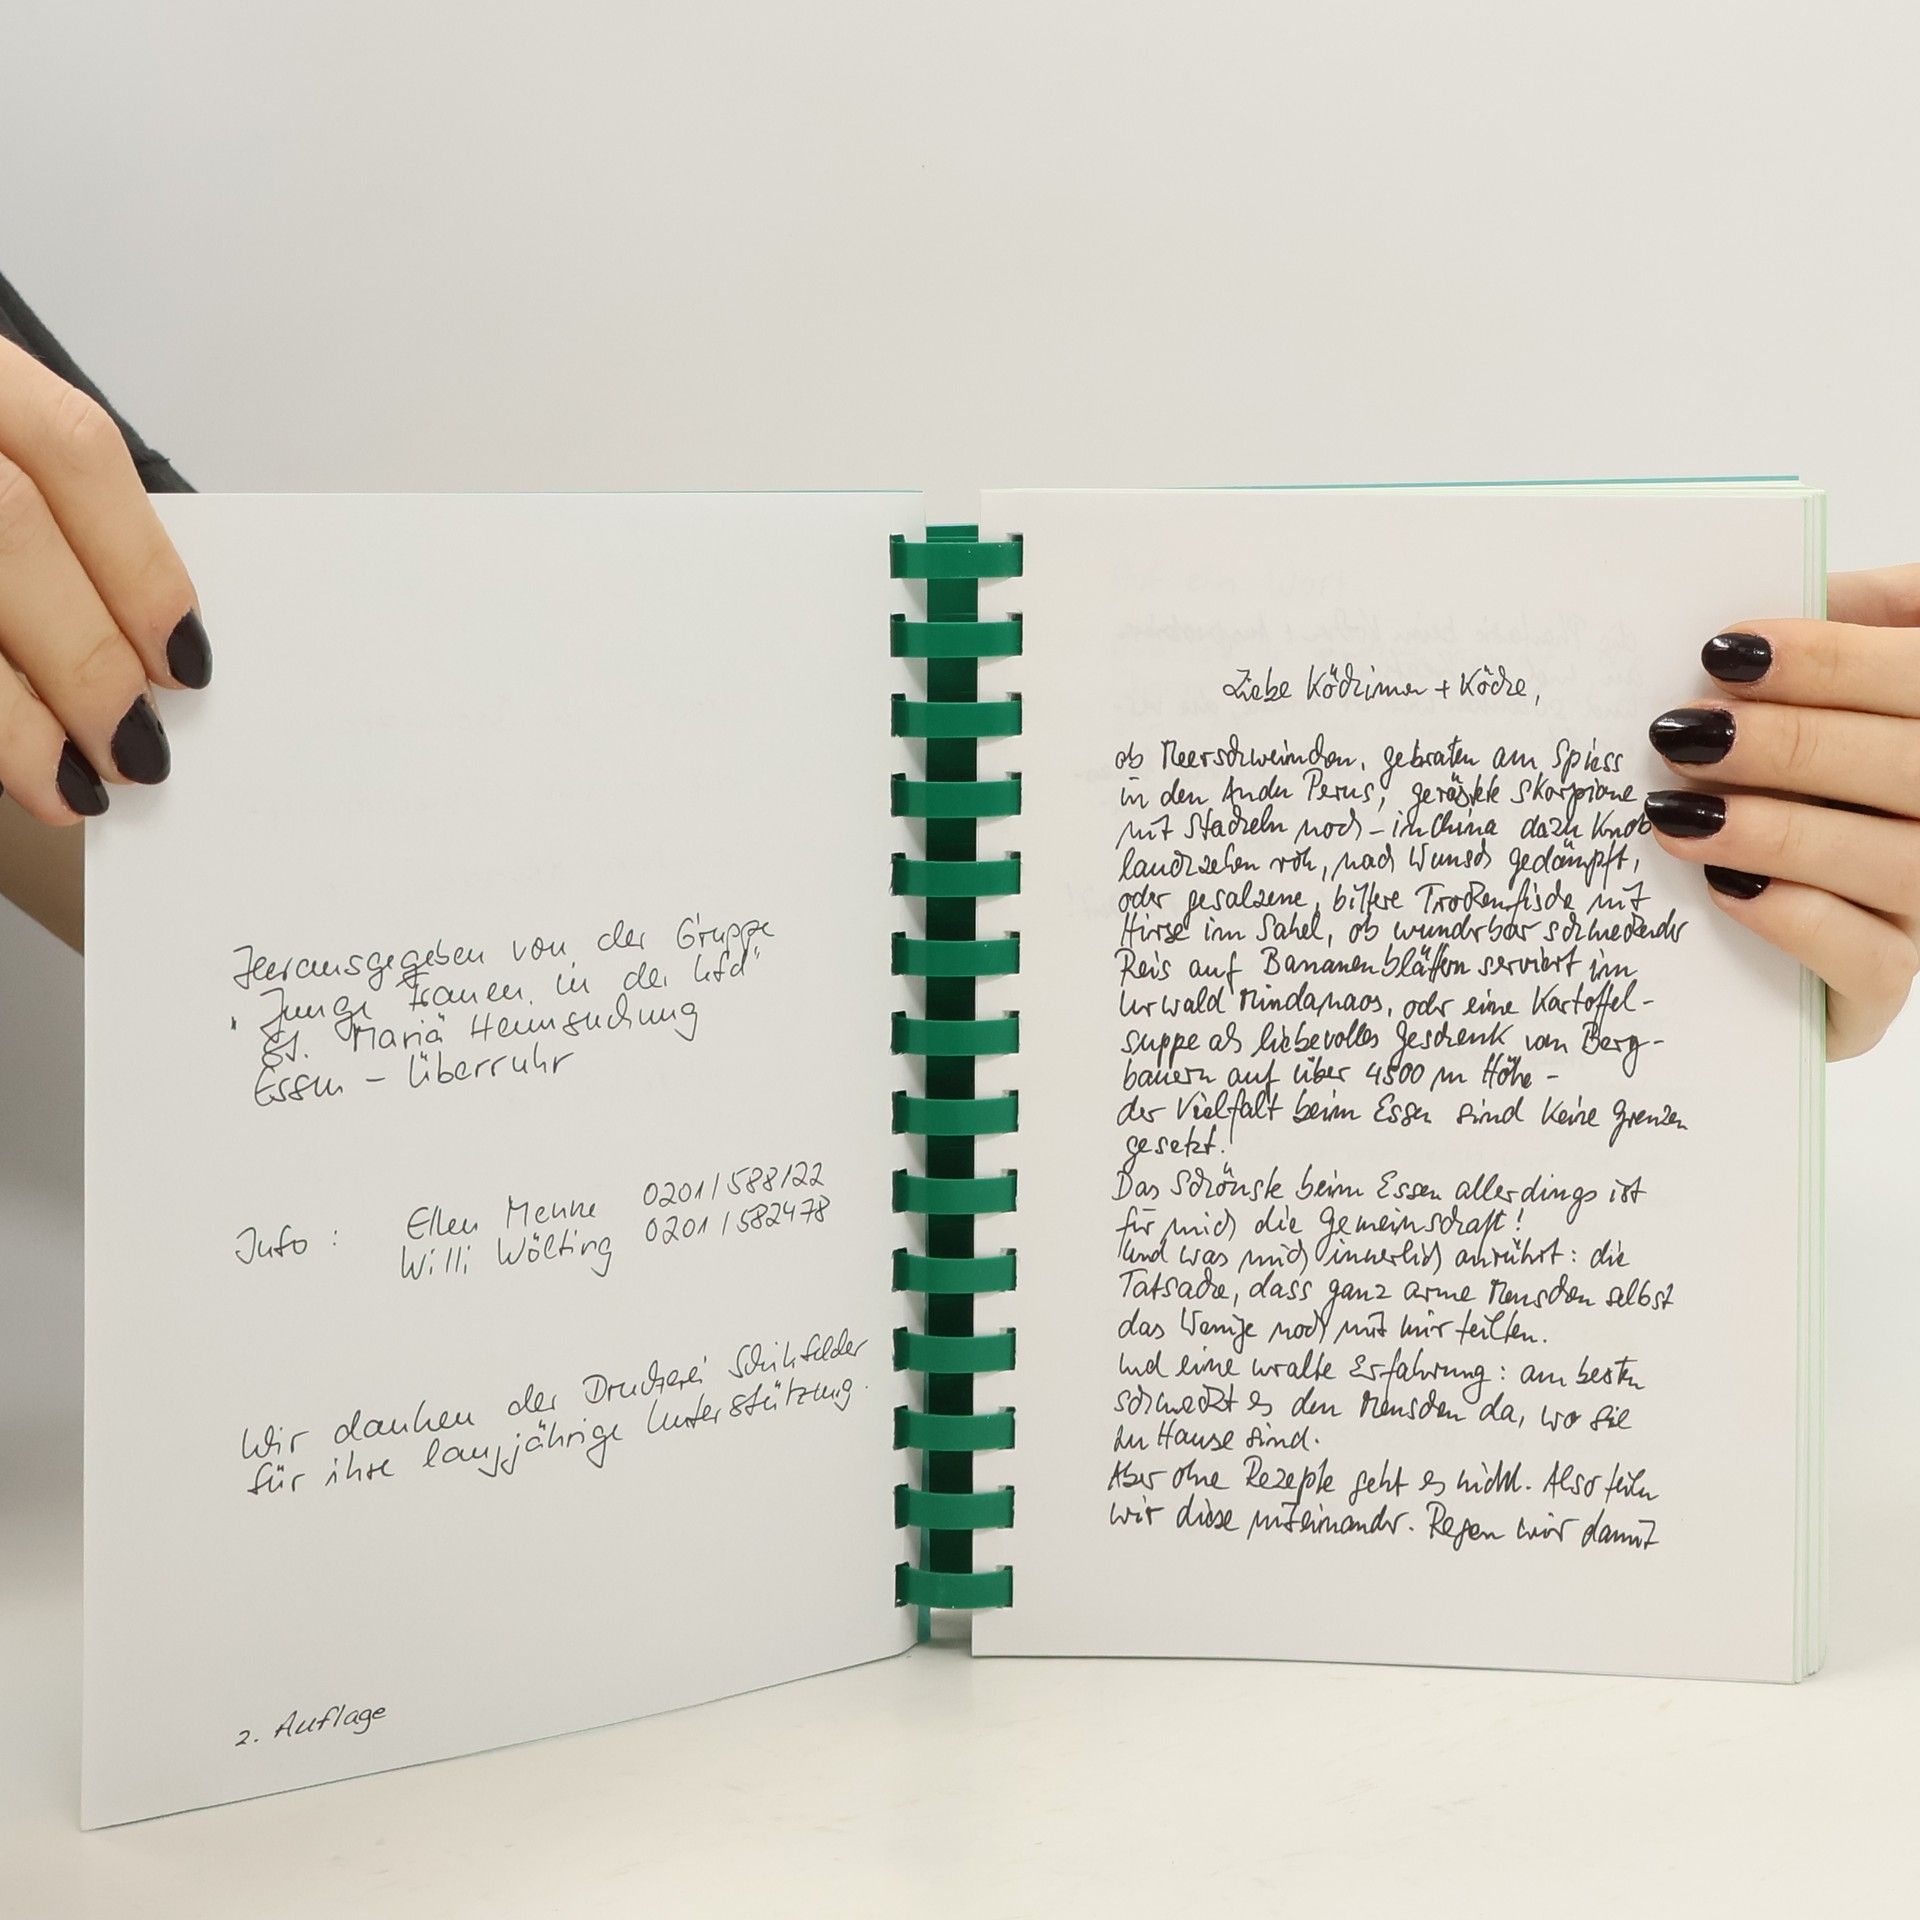 Herausgegeben von der Gruppe
"Junge Frauen in der kfd"
St. Mariä Heimsuchung
Essen - Überruhr
Info : Ellen Menne 0201/588122
Willi Wölting 0201/582478
Wir danken der Druckerei Schihfelder
für ihre langjährige Unterstützung.
2. Auflage
Liebe Köchinnen + Köche,
ob Meerschweinchen, gebraten am Spiess
in den Anden Perus, geröstete Skorpione
mit Stacheln noch - in China dazu Knob
lauchzehen roh, nach Wunsch gedämpft,
oder gesalzene, bittere Trockenfische mit
Hirse im Sahel, ob wunderbar schmeckender
Reis auf Bananenblättern serviert im
Urwald Mindanaos, oder eine Kartoffel-
suppe als liebevolles Geschenk von Berg-
bauern auf über 4500 m Höhe -
der Vielfalt beim Essen sind keine Grenzen
gesetzt!
Das Schönste beim Essen allerdings ist
für mich die Gemeinschaft!
Und was mich innerlich anrührt: die
Tatsache, dass ganz arme Menschen selbst
das Wenige noch mit mir teilten.
Und eine uralte Erfahrung: am besten
schmeckt es den Menschen da, wo sie
zu Hause sind.
Aber ohne Rezepte geht es nicht. Also teilen
wir diese miteinander. Regen wir damit